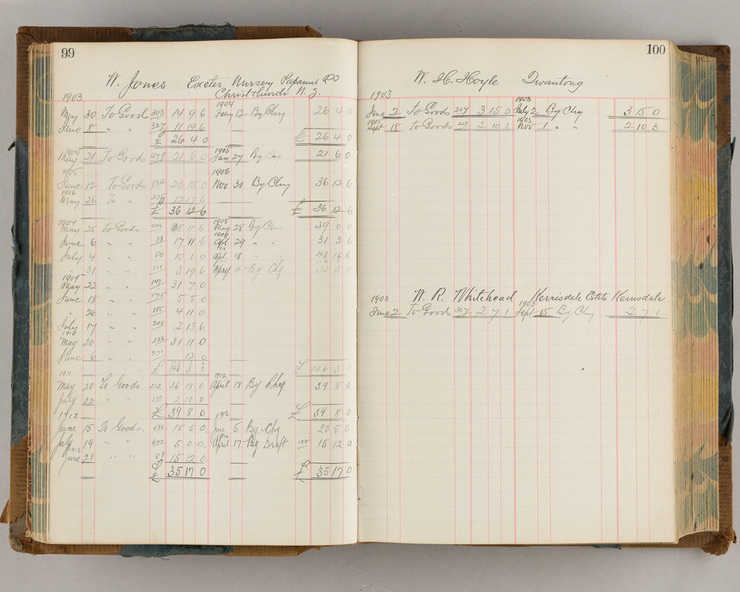 99
W. Jones Exeter Nursery Papanui Rd
Christchurch N. Z.
1903 1904
May 30 To Goods 303 14 9 6 Feby 12 By Chq 26 4 0
June 8 " " 327 11 14 6
£ 26 4 0 £ 26 4 0
1904 1905
May 21 To Goods 21 6 0 Jan 27 By 21 6 0
1905 1906
June 12 To Goods 23 15 0 Nov 30 By Chq 36 12 6
1906
May 26 To " 12 17 6
£ 36 12 6 £ 36 12 6
1907 1908
May 25 To Goods 11 6 May 28 By Chq 39 0 0
June 6 " " 17 11 6 Apl 29 " " 31 3 6
July 4 " " 10 1 0 Apl 18 " "
31 " " 3 19 6 May By Chq
1909
May 22 " " 31 7 0
June 15 " " 5 5 0
26 " " 4 11 0
July 17 " " 2 13 6
1910
May 20 " " 31 11 0
June 6 " " 12 0
£ 126 3 0 £ 126 3 0
1911 1912
May 20 To Goods 212 36 18 0 April 18 By Chq 39 8 0
July 22 " " 2 10 0
£ 39 8 0 £ 39 8 0
1912
June 15 To Goods 15 5 0 June 5 By Chq 20 5 0
July 19 " " 5 0 0 April 17 By Draft 15 12 0
June 21 " " 15 12 0
£ 35 17 0 £ 35 17 0
100
W. H. Hoyle Dwantong
1903 1903
June 2 To Goods 307 3 15 0 July 2 By Chq 3 15 0
Sept 18 To Goods 2 10 3 Nov 1 " " 2 10 3
W. R. Whitehead Kerrisdale Estate Kerrisdale
1903 1903
June 2 To Goods 307 2 7 1 Sept 15 By Chq 2 7 1